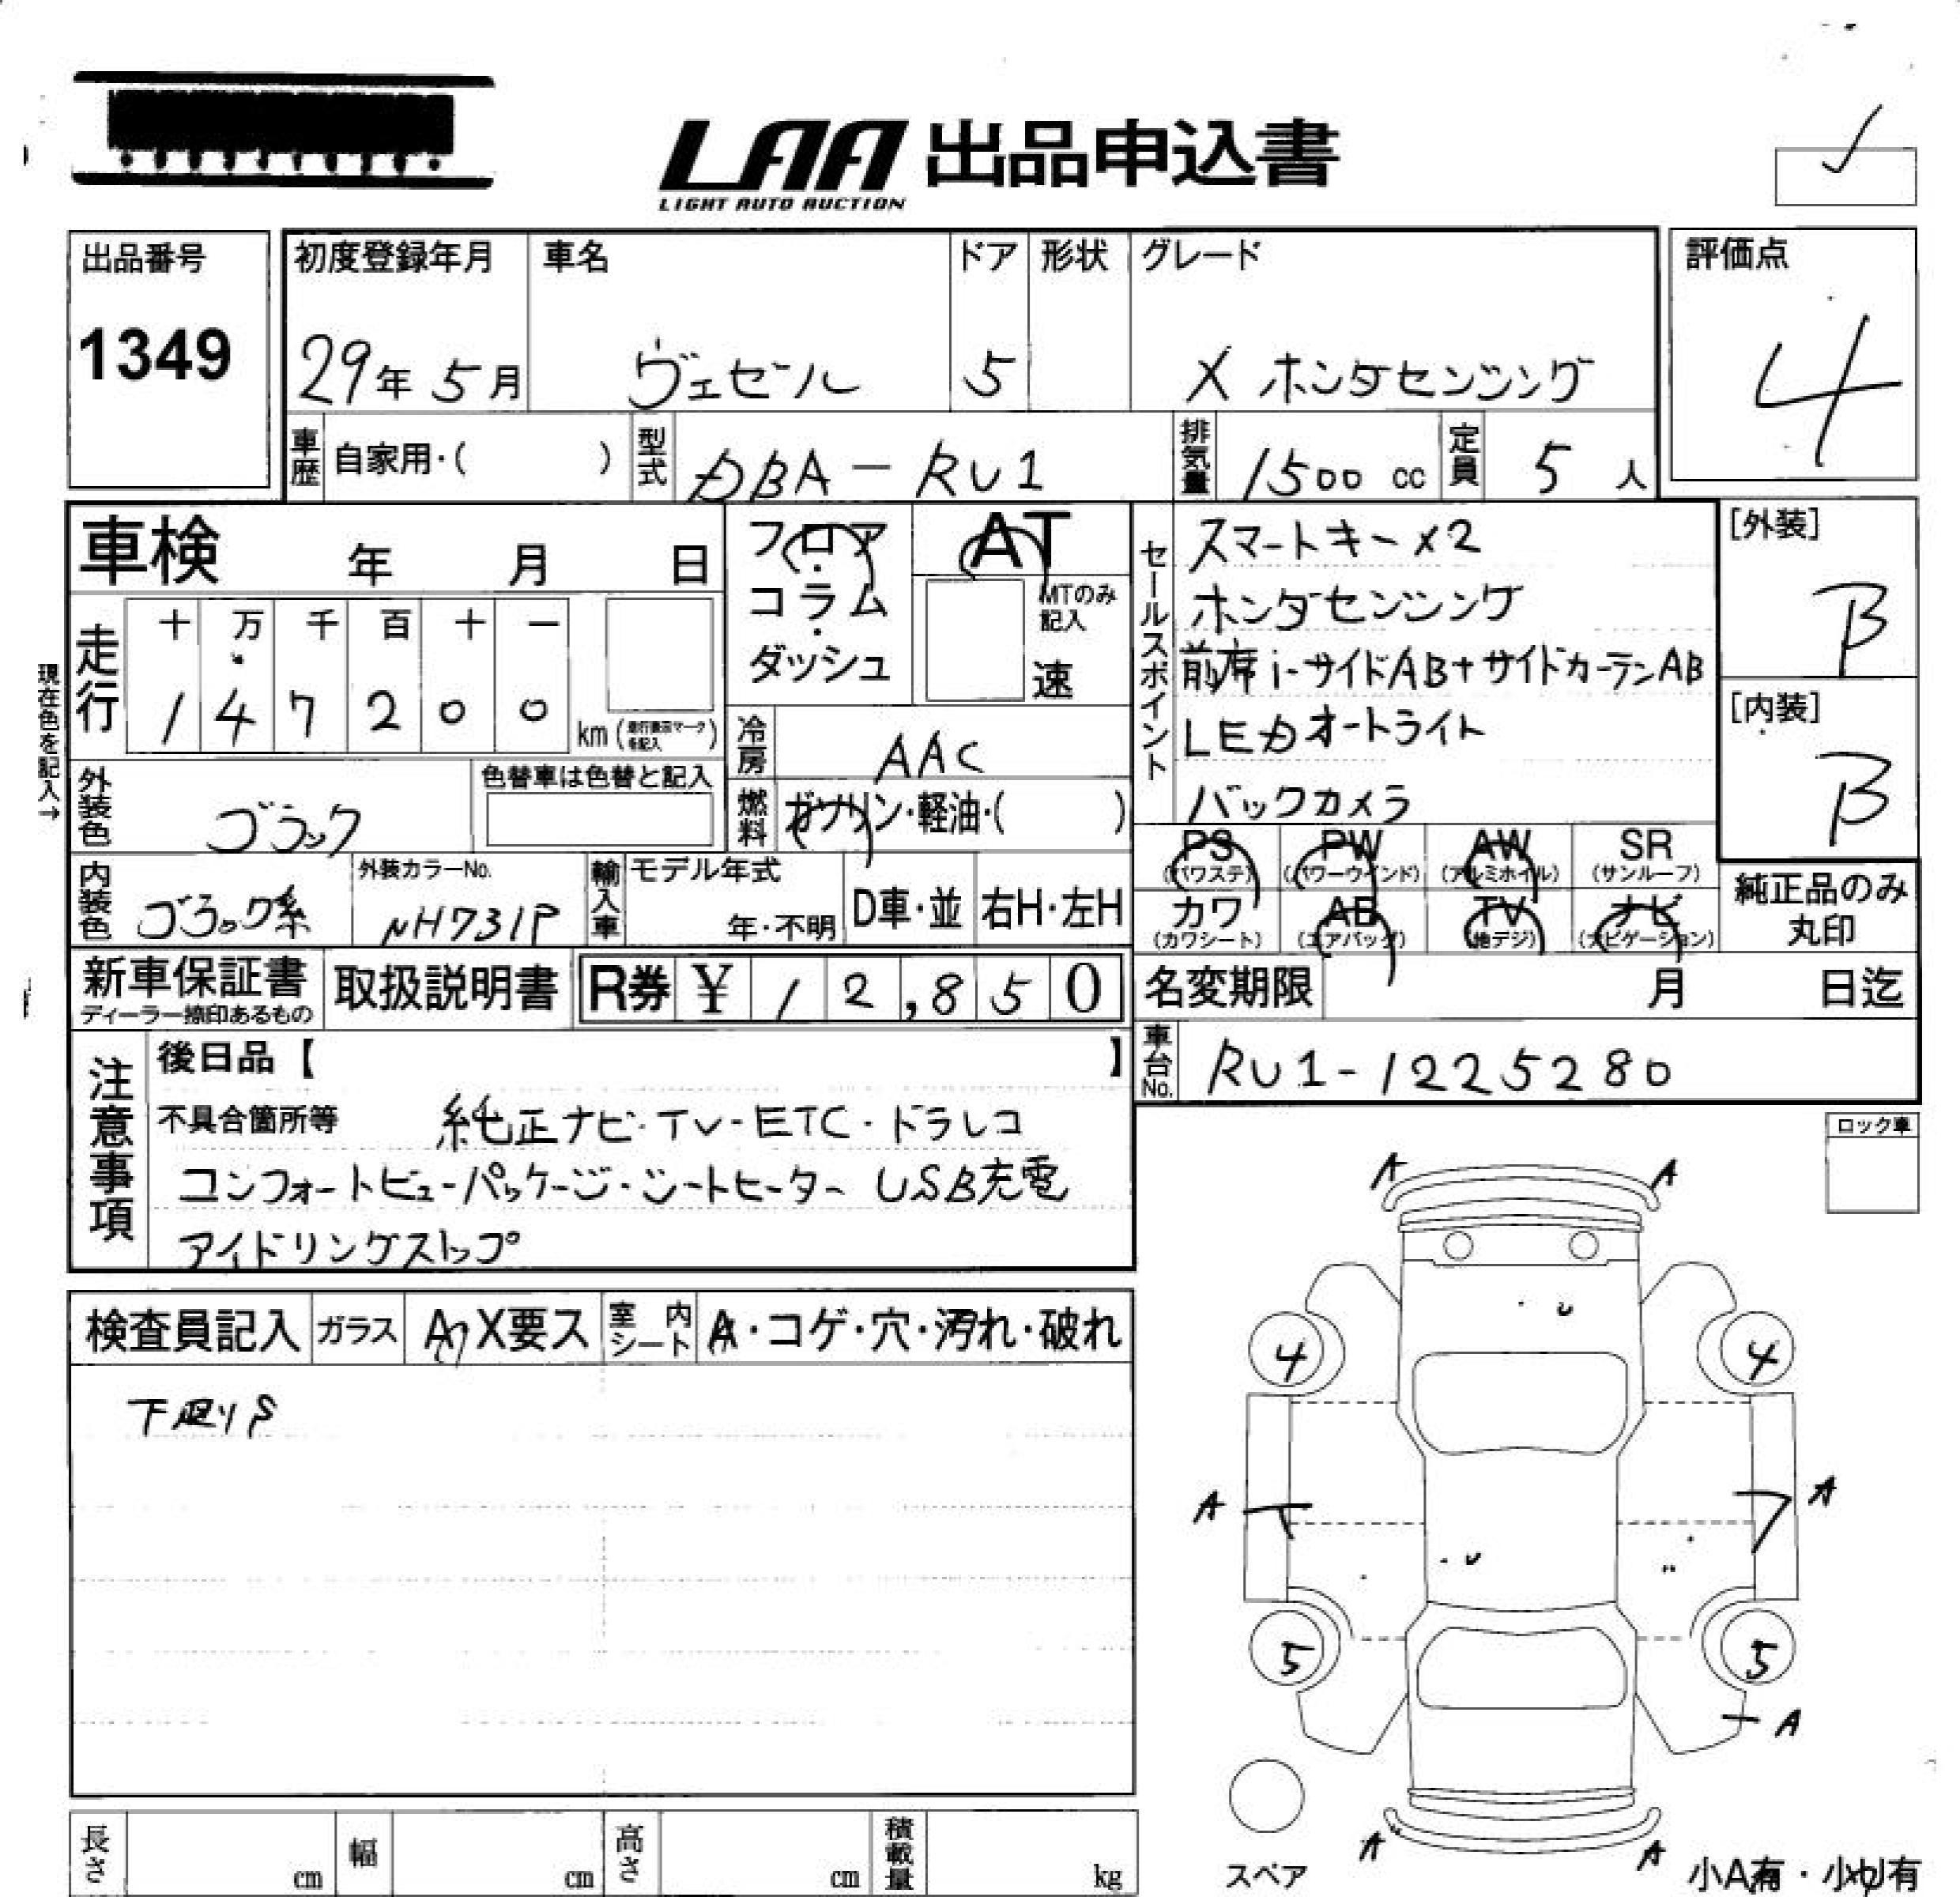 LAA 出品申込書
LIGHT AUTO AUCTION
出品番号
1349
初度登録年月
29年 5月
車名
ヴェゼル
ドア
5
形状
グレード
X ホンダセンシング
評価点
4
車歴
自家用・( )
型式
DBA-RU1
排気量
1500 cc
定員
5 人
車検 年 月 日
現在色を記入→
走行
十 万 千 百 十 一
1 4 7 2 0 0 km
外装色
ブラック
色替車は色替と記入
内装色
ブラック系
外装カラーNo.
NH731P
フロア・コラム・ダッシュ
AT
MTのみ記入
速
冷房
AAC
燃料
ガソリン・軽油・( )
輸入車
モデル年式
年・不明
D車・並
右H・左H
セールスポイント
スマートキー×2
ホンダセンシング
前席i-サイドAB+サイドカーテンAB
LEDオートライト
バックカメラ
[外装]
B
[内装]
B
PS (パワステ)
PW (パワーウインド)
AW (アルミホイル)
SR (サンルーフ)
カワ (カワシート)
AB (エアバッグ)
TV (地デジ)
ナビ (ナビゲーション)
純正品のみ丸印
新車保証書
ディーラー捺印あるもの
取扱説明書
R券 ¥ 12,850
名変期限 月 日迄
車台No.
RU1-1225280
注意事項
後日品【 】
不具合箇所等 純正ナビ・TV・ETC・ドラレコ
コンフォートビューパッケージ・シートヒーター USB充電
アイドリングストップ
ロック車
検査員記入
ガラス
A X要ス
室内シート
A・コゲ・穴・汚れ・破れ
A A
4 4
A A
5 5
A
A A
スペア
小A有・小U有
長さ cm
幅 cm
高さ cm
積載量 kg